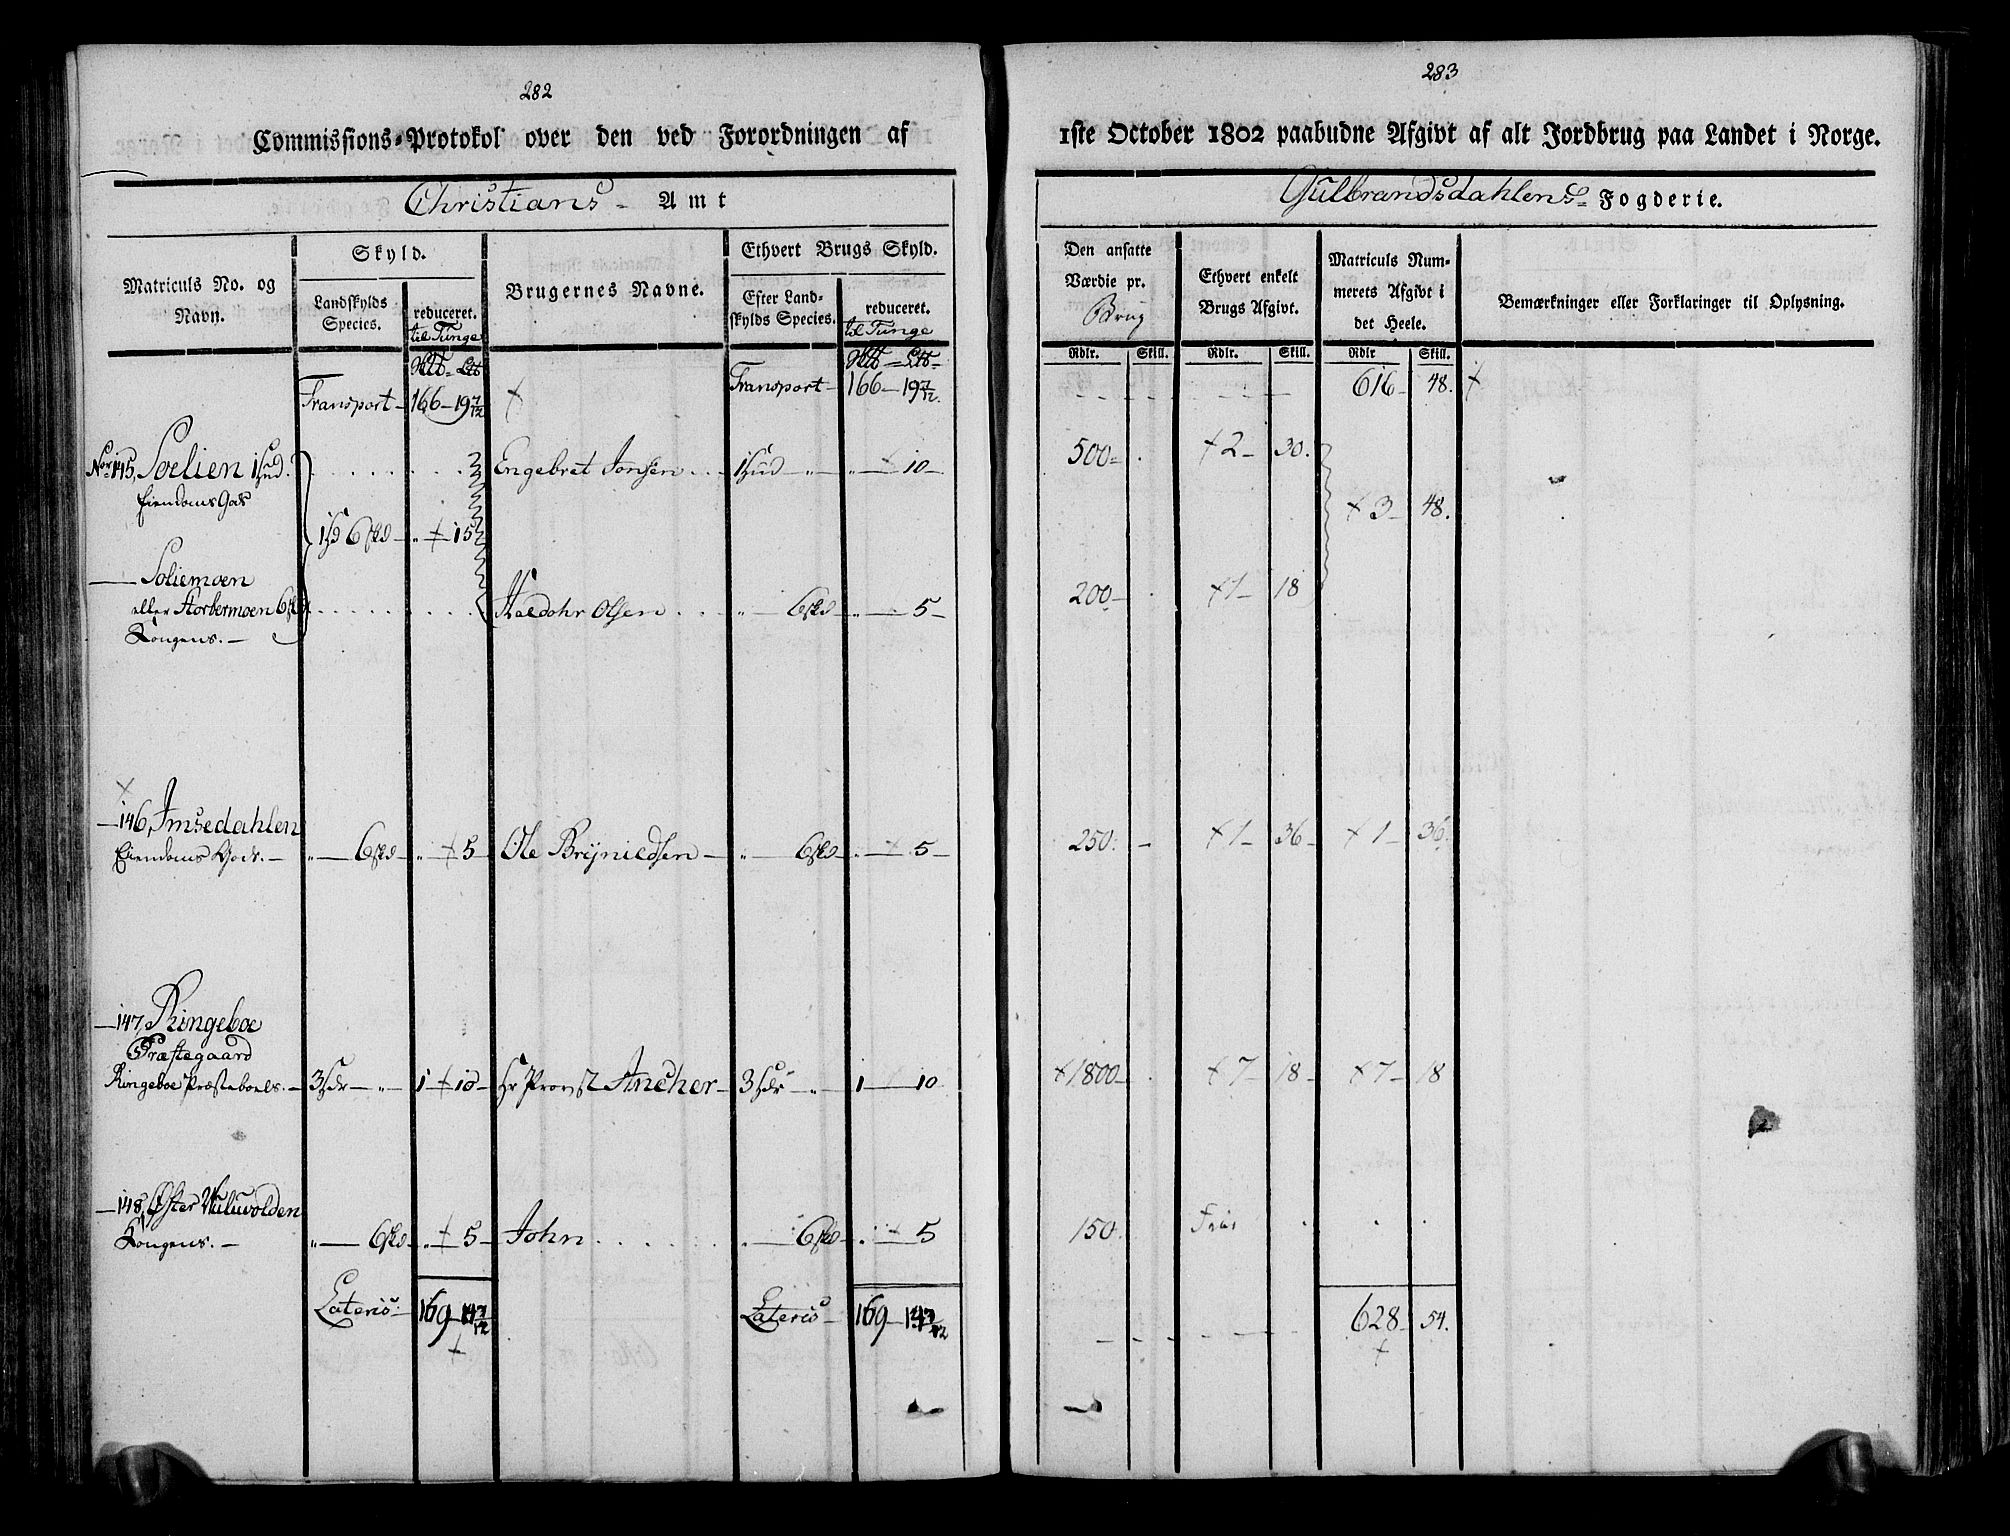 282
Commissions-Protokol over den ved Forordningen af
Christians Amt
Matriculs No. og Navn.
Skyld.
Landskylds Species.
reduceret. til Tunge
Brugernes Navne.
Ethvert Brugs Skyld.
Efter Landskylds Species.
reduceret. til Tunge
Transport 166 - 19 7/12
Transport - 166 - 19 7/12
145, Soelien 1 Hud. Engebret Jonsen 1 Hud 10
Eiendoms Gods
1 Hd 6 skd 15
Soliemoen
eller Storbermoen 6 Haldohr Olsen 6 skd 5
Kongens.
146, Imsedahlen
Eiendoms Gods. 6 skd 5 Ole Brynildsen 6 skd 5
147, Ringeboe
Præstegaard
Ringeboe Præsteboels. 3 Hdr 1 10 Hr Provst Ancher 3 Hdr 1 10
148, Øster
Kongens. 6 skd 5 John 6 skd 5
Lateris 169 14 7/12 Lateris 169 14 7/12
283
1ste October 1802 paabudne Afgivt af alt Jordbrug paa Landet i Norge.
Gulbrandsdahlens Fogderie.
Den ansatte Værdie pr. Brug
Ethvert enkelt Brugs Afgivt.
Matriculs Nummerets Afgivt i det Heele.
Bemærkninger eller Forklaringer til Oplysning.
Rdlr. Skill. Rdlr. Skill. Rdlr Skill.
616 48.
500 2 30.
3 48.
200 1 18
250 1 36 1 36
1800 7 18 7 18
150 Frie
628 54.